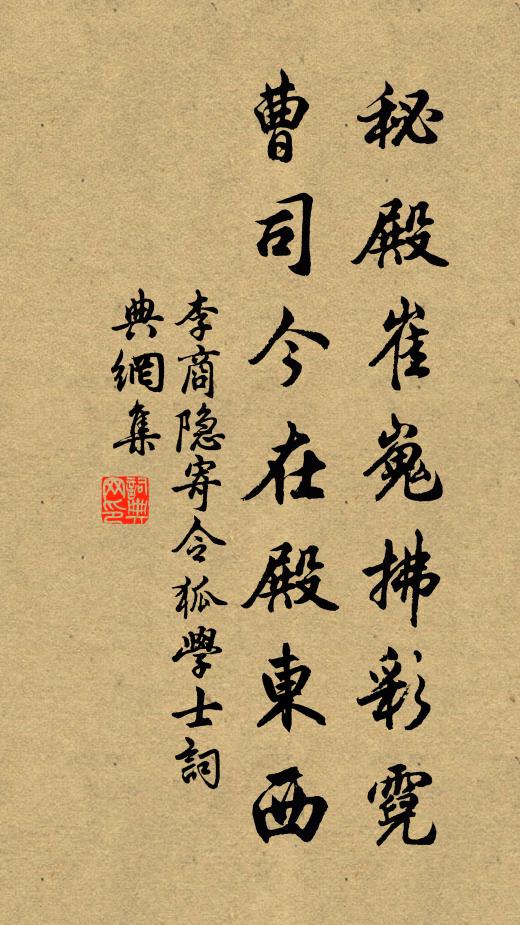 秘殿崔嵬拂彩霓
曹司今在殿東西
李商隐寄令狐學士詞
典網集
詞典網印